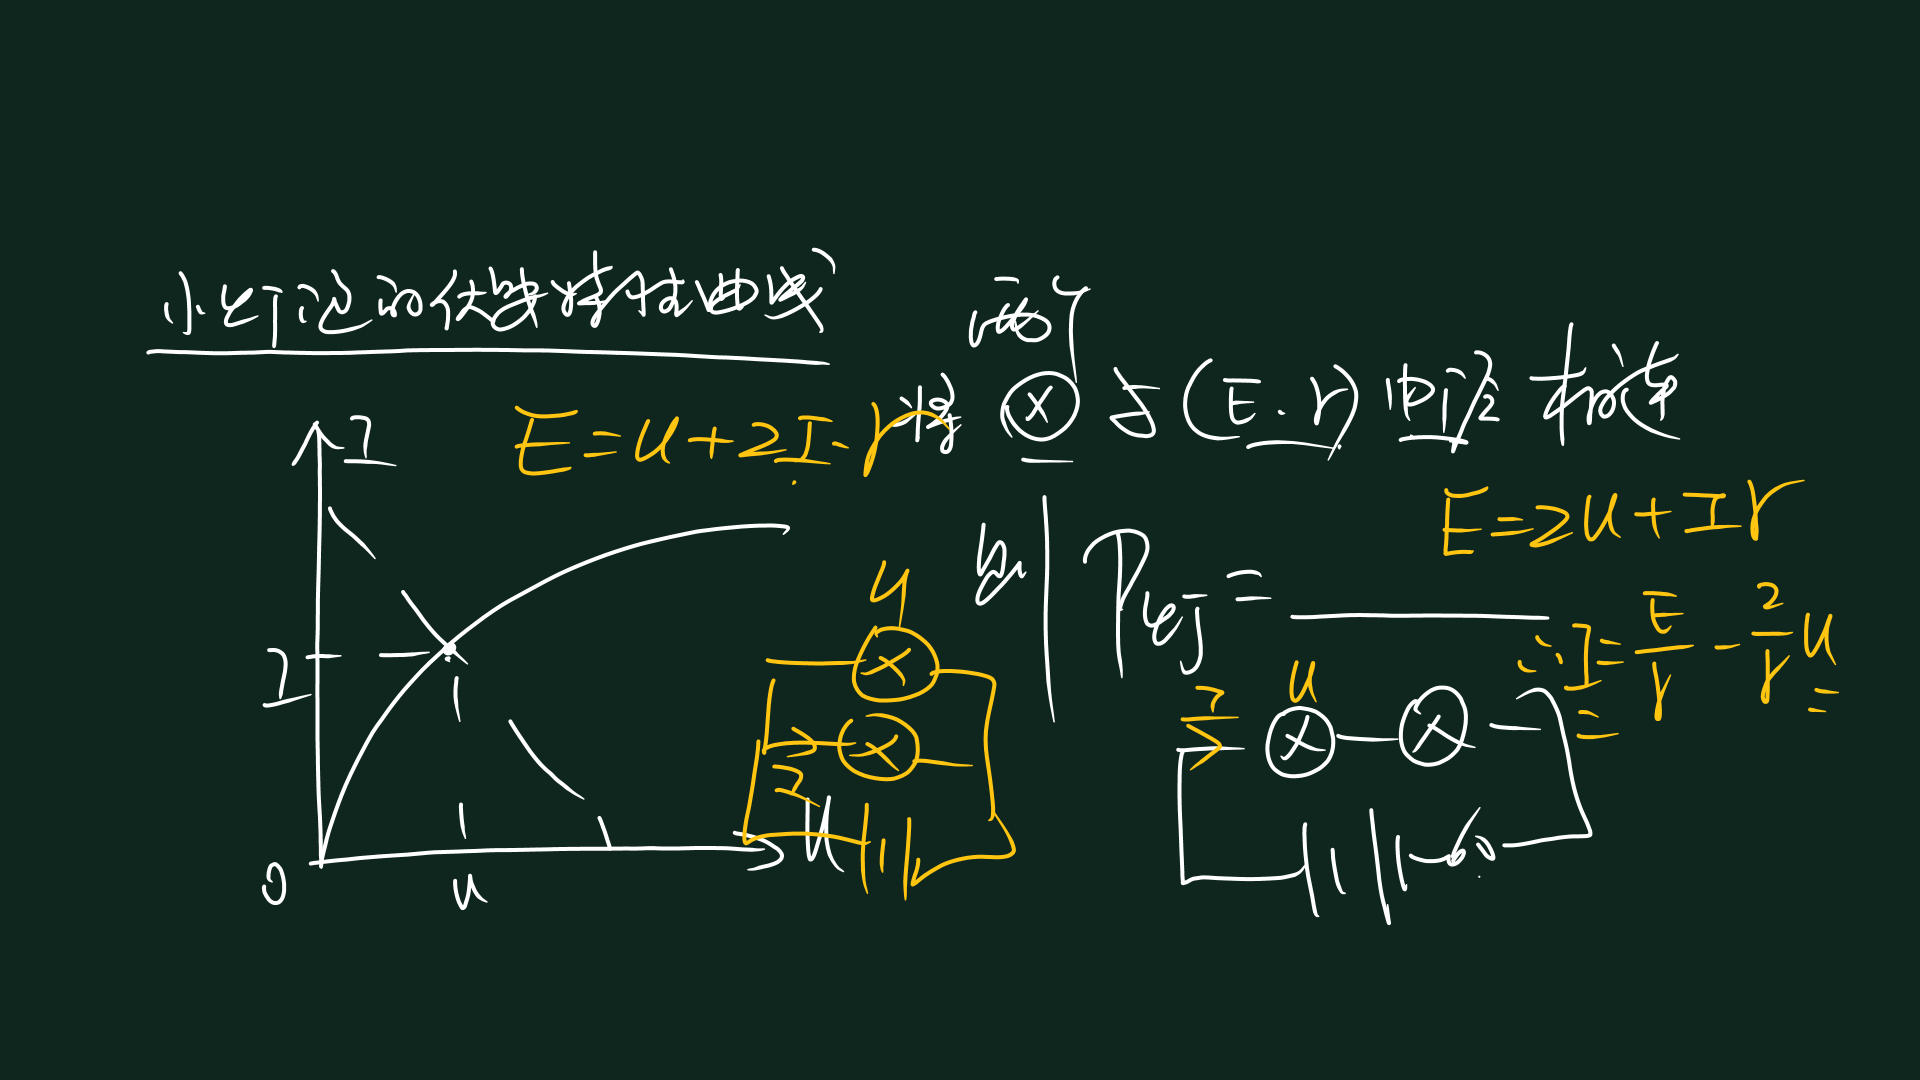 小灯泡的伏安特性曲线
两个
将 ⊗ 与 (E.r) 电源 相连
E=U+2I·r
I
E=2U+Ir
则 P灯=
∴I=E/r-2/rU
U
I
U
I
I
U
0
u